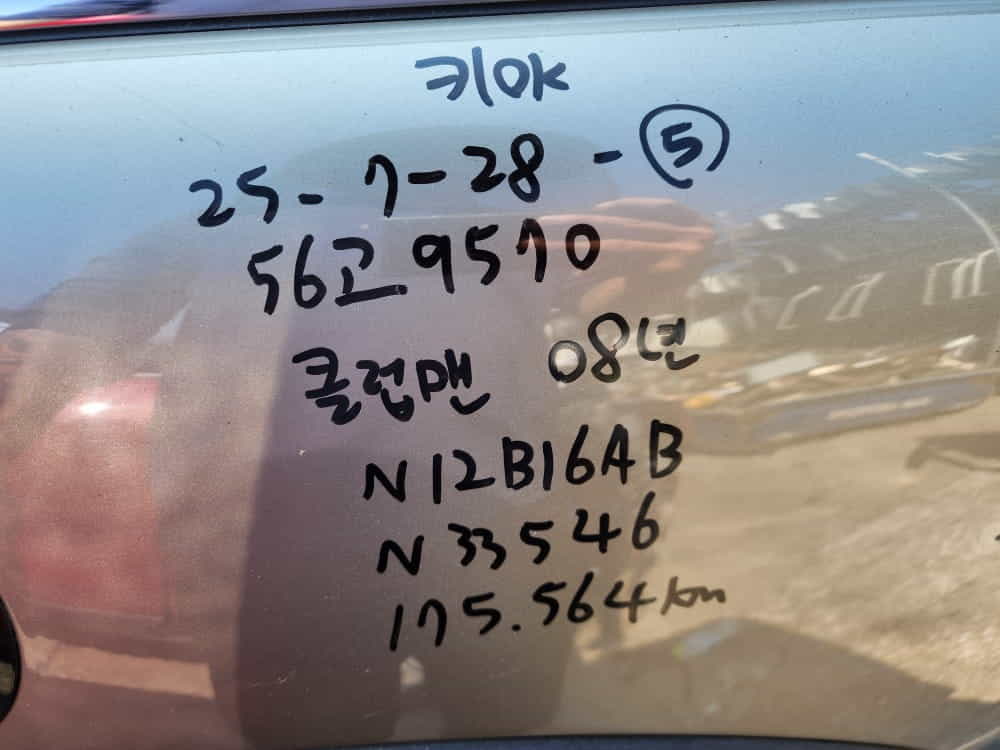 키OK
25-7-28-⑤
56고9570
클럽맨 08년
N12B16AB
N33546
175.564km